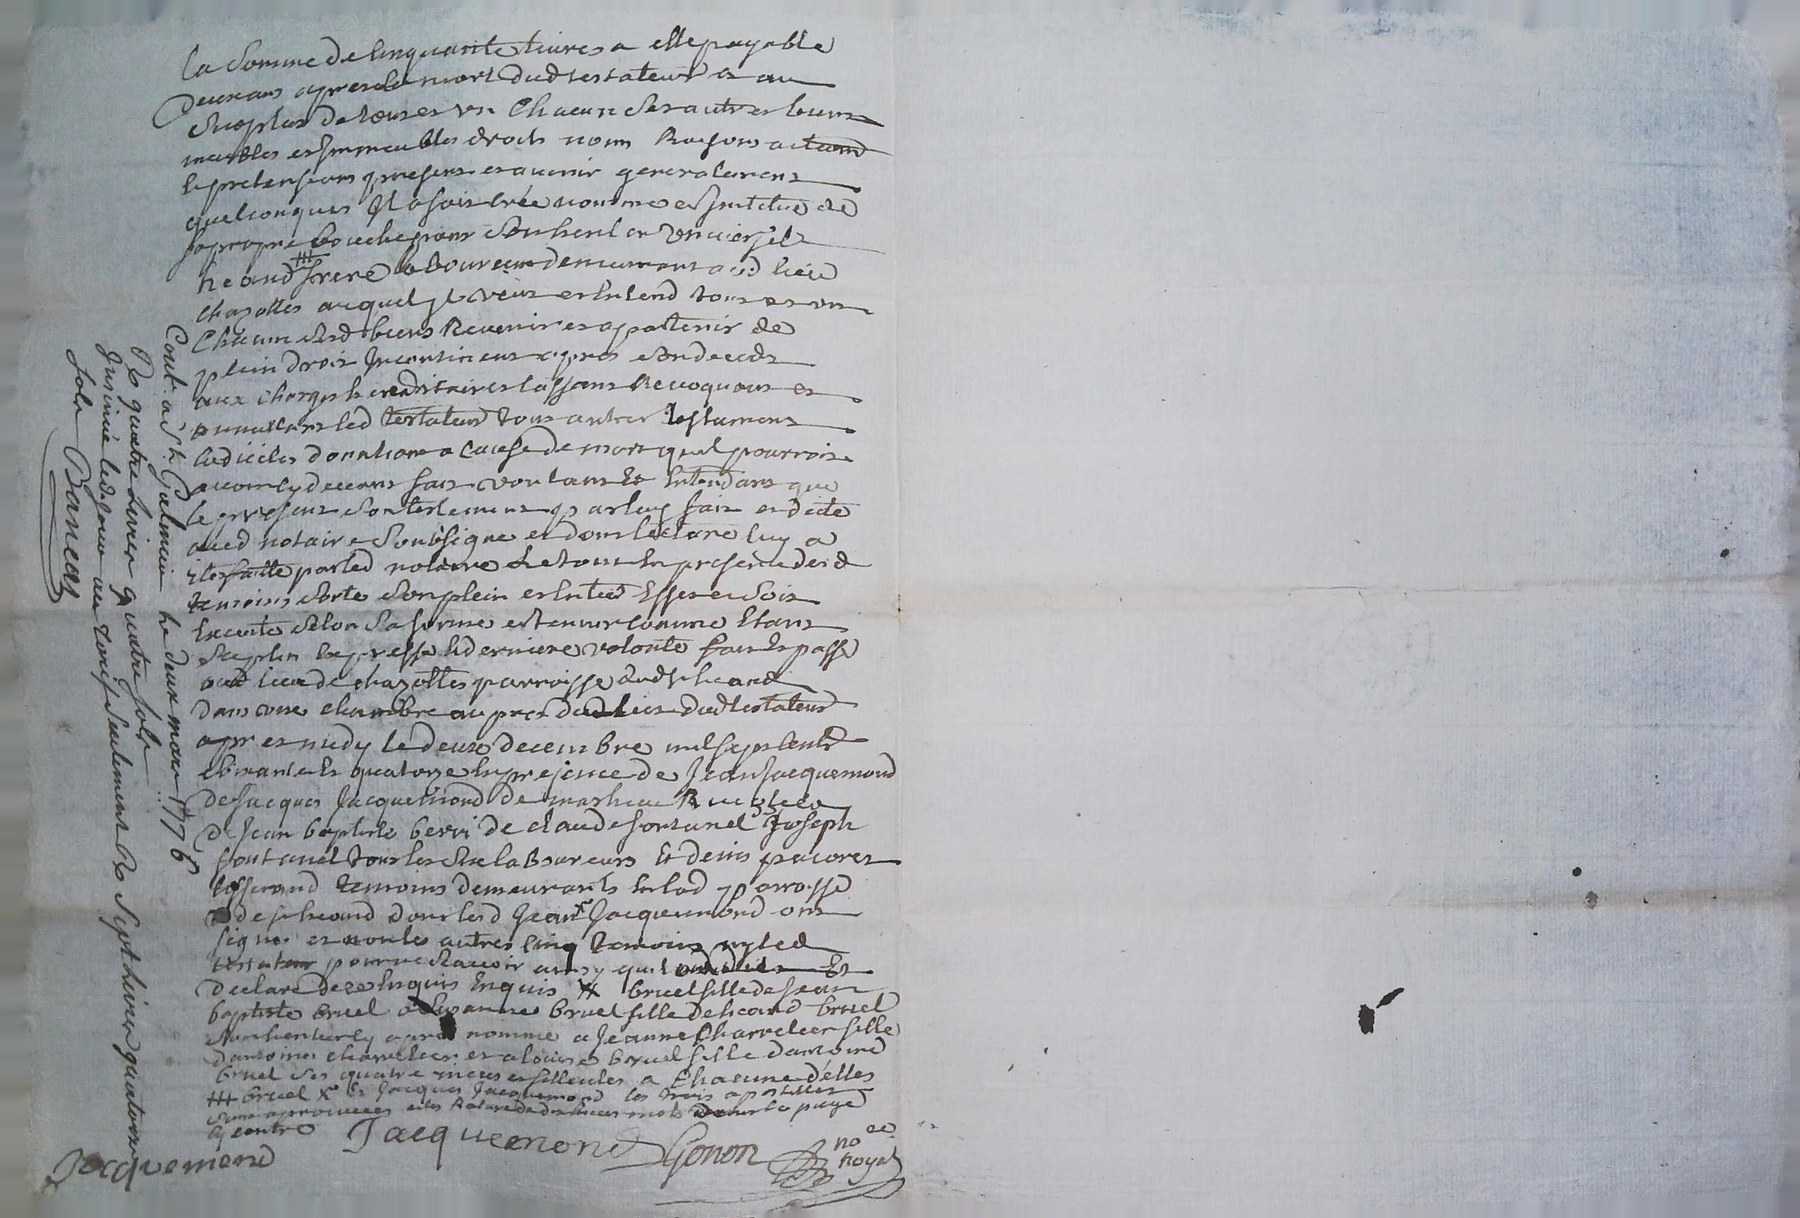 La Somme de Cinquante Livres a elle payable
deux ans apres la mort dud testateur et au
Surplus de tous et un Chacun Ses autres biens
meubles et Immeubles droits noms Raisons actions
et pretensions presens et avenir generalement
quelconques Il a fait créé nomme et Institué de
Sa propre bouche pour Son heritier universel
heand ⧻ frere laboureur demeurant aud lieu
Chazottes auquel Il veut et Entend tous et un
Chacun Sesd biens Revenir et apartenir de
plein droit Incontinent apres Son deceds
aux charges hereditaires Cassant Revoquant et
annullant led testateur tous autres testament
Codiciles donations a Cause de mort quil pourroit
avoir cy devant fait voulant Et Entendant que
le present Son testement par luy fait et dicté
aud notaire Soubsigné et dont lecture luy a
eté faitte par led notaire Le tout En presence desd
temoins Sorte Son plein et Entier Effet et Soit
Executé Selon Sa forme et teneur Comme Etant
Sa plus Expresse et derniere volonté fait Et passé
aud lieu de chazottes parroisse dud St heand
dans une chambre au pres du lict dud testateur
apres midy le deux decembre mil sept cent
soixante Et quatorze En presence de Jean Jacquemond
de Jacques Jacquemond de
de Jean baptiste de claude fontanel Joseph
fontanel tous les Six laboureurs Et denis
tisserand temoins demeurants En lad parroisse
de St heand dont lesd Jean x Jacquemond ont
Signé et non les autres Cinq temoins ny led
testateur pour ne Scavoir ainsy quil ont dit Et
declaré de ce Enquis Requis # bruel fille de Jean
baptiste bruel a Suzanne bruel fille de heand bruel
Son heritier cy apres nommé a Jeanne Charveleer fille
dantoine charveleer et a louise bruel fille dantoine
bruel Ses quatre nieces et filleules a Chacune d'elles
⧻ bruel x Et Jacques Jacquemond les trois apostilles
Sont aprouvées et la Rature de mots dans la page
cy contre
Jacquemond Gonon no.re Royal
Jacquemond
Cont. a St Galmier le deux mars 1776
R. quatre Livres quatre Sols
Insinué led. jour au tarif Seulement R. Sept livres quatorze
Sols Bancal